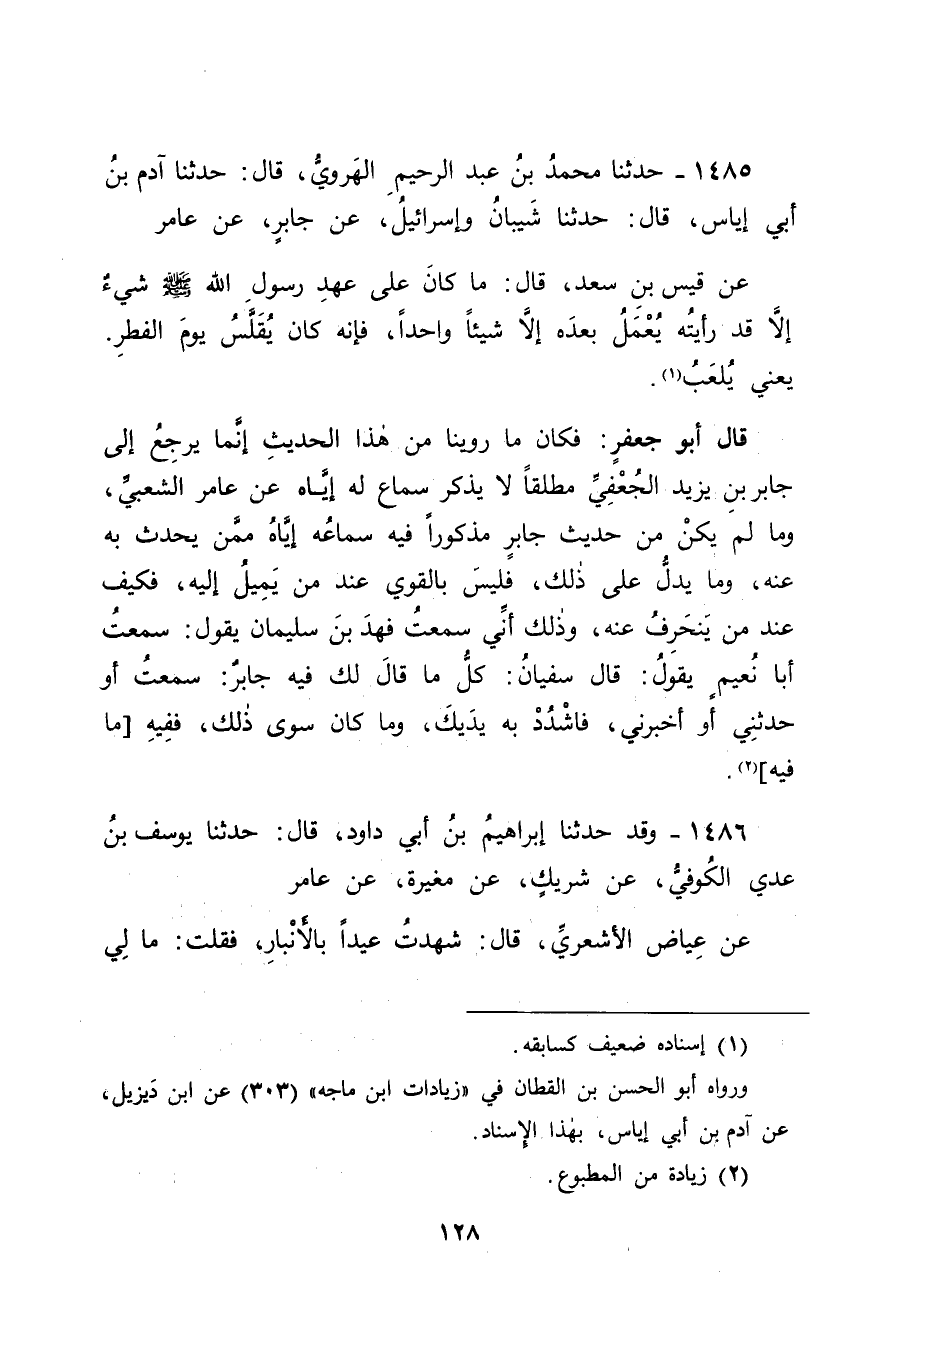 ١٤٨٥ - حدثنا محمدُ بنُ عبد الرحيمِ الهَرويُّ، قال: حدثنا آدم بنُ
أبي إياس، قال: حدثنا شَيبانُ وإسرائيلُ، عن جابرٍ، عن عامر
عن قيس بن سعد، قال: ما كانَ على عهدِ رسولِ الله ﷺ شيءٌ
إلَّا قد رأيتُه يُعْمَلُ بعدَه إلَّا شيئاً واحداً، فإنه كان يُقَلَّسُ يومَ الفطرِ.
يعني يُلعَبُ(١).
قال أبو جعفرٍ: فكان ما روينا من هٰذا الحديثِ إنَّما يرجعُ إلى
جابر بن يزيد الجُعْفِيِّ مطلقاً لا يذكر سماع له إيَّاه عن عامر الشعبيِّ،
وما لم يكنْ من حديث جابرٍ مذكوراً فيه سماعُه إيَّاهُ ممَّن يحدث به
عنه، وما يدلُّ على ذٰلك، فليسَ بالقوي عند من يَمِيلُ إليه، فكيف
عند من يَنحَرِفُ عنه، وذٰلك أنِّي سمعتُ فهدَ بنَ سليمان يقول: سمعتُ
أبا نُعيمٍ يقولُ: قال سفيانُ: كلُّ ما قالَ لك فيه جابرٌ: سمعتُ أو
حدثنِي أو أخبرني، فاشْدُدْ به يدَيكَ، وما كان سوى ذٰلك، ففِيهِ [ما
فيه](٢).
١٤٨٦ - وقد حدثنا إبراهيمُ بنُ أبي داود، قال: حدثنا يوسف بنُ
عدي الكُوفيُّ، عن شريكٍ، عن مغيرة، عن عامر
عن عِياض الأشعريِّ، قال: شهدتُ عيداً بالأَنْبارِ، فقلت: ما لِي
(١) إسناده ضعيف كسابقه.
ورواه أبو الحسن بن القطان في «زيادات ابن ماجه» (٣٠٣) عن ابن دَيزيل،
عن آدم بن أبي إياس، بهٰذا الإسناد.
(٢) زيادة من المطبوع.
١٢٨